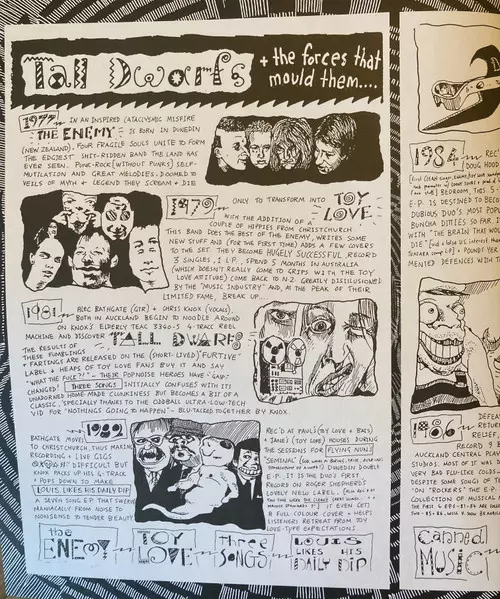 Tall Dwarfs
+ the forces that
mould them....
1977 IN AN INSPIRED CATACLYSMIC MISFIRE
THE ENEMY IS BORN IN DUNEDIN
(NEW ZEALAND). FOUR FRAGILE SOULS UNITE TO FORM
THE EDGIEST SHIT-RIDDEN BAND THE LAND HAS
EVER SEEN. PUNK-ROCK (WITHOUT PUNKS) SELF-
MUTILATION AND GREAT MELODIES. DOOMED TO
VEILS OF MYTH + LEGEND THEY SCREAM + DIE
1979 ONLY TO TRANSFORM INTO TOY
LOVE
WITH THE ADDITION OF A
COUPLE OF HIPPIES FROM CHRISTCHURCH
THIS BAND DOES THE BEST OF THE ENEMY, WRITES SOME
NEW STUFF AND (FOR THE FIRST TIME) ADDS A FEW COVERS
TO THE SET. THEY BECOME HUGELY SUCCESSFUL, RECORD
3 SINGLES, 1 L.P., SPEND 5 MONTHS IN AUSTRALIA
(WHICH DOESN'T REALLY COME TO GRIPS WITH THE TOY
LOVE ATTITUDE) COME BACK TO N.Z. GREATLY DISILLUSIONED
BY THE "MUSIC INDUSTRY" AND, AT THE PEAK OF THEIR
LIMITED FAME, BREAK UP...
1981 ALEC BATHGATE (GTR) + CHRIS KNOX (VOCALS),
BOTH IN AUCKLAND BEGIN TO NOODLE AROUND
ON KNOX'S ELDERLY TEAC 3340-S 4-TRACK REEL
MACHINE AND DISCOVER TALL DWARFS
THE RESULTS OF
THESE FUMBLINGS
+ FARTINGS ARE RELEASED ON THE (SHORT-LIVED) "FURTIVE"
LABEL + HEAPS OF TOY LOVE FANS BUY IT AND SAY
"WHAT THE FUCK?!" THEIR POPNOISE HEROES HAVE "GASP"
CHANGED! THREE SONGS INITIALLY CONFUSES WITH ITS
UNADORNED HOME-MADE CLUNKINESS BUT BECOMES A BIT OF A
CLASSIC SPECIALLY THANKS TO THE ODDBALL ULTRA-LOW-TECH
VID FOR "NOTHING'S GOING TO HAPPEN" - BLU-TACKED TOGETHER BY KNOX.
1982
BATHGATE MOVES
TO CHRISTCHURCH, THUS MAKING
RECORDING + LIVE GIGS
DIFFICULT BUT
KNOX PACKS UP HIS 4-TRACK
+ POPS DOWN TO MAKE
LOUIS LIKES HIS DAILY DIP
A SEVEN SONG EP THAT SWERVES
MANIACALLY FROM NOISE TO
NONSENSE TO TENDER BEAUTY
REC'D AT PAUL'S (TOY LOVE + BATS)
+ JANE'S (TOY LOVE) HOUSES DURING
THE SESSIONS FOR FLYING NUN'S
SEMINAL
DUNEDIN DOUBLE
E.P. IT IS THE DUO'S FIRST
RECORD ON ROGER SHEPHERD'S
LOVELY NEW LABEL.
IT EVEN GETS
A FULL COLOUR COVER + HELPS
LISTENERS RETREAT FROM TOY
LOVE-TYPE EXPECTATIONS
the
ENEMY
TOY
LOVE
Three
SONGS
LOUIS
LIKES HIS
DAILY DIP
1984 REC'
DOUG HOOD
BEDROOM, THIS
E.P. IS DESTINED TO BECO
DUBIOUS DUO'S MOST POPU
BUNCHA DITTIES SO FAR
WITH "THE BRAIN THAT WOU
DIE"
MENTED DEFENCES WITH T
1986
DEFEA
RETURN
RELIEF
RECORD 9
AUCKLAND CENTRAL PLAY
STUDIO. MOST OF IT WAS
VERY BAD FLU-LIKE CONDI
DESPITE SOME SONGS OF THE
ON "ROCKERS" THE E.P.
COLLECTION OF MUSICAL
canned
MUSIC